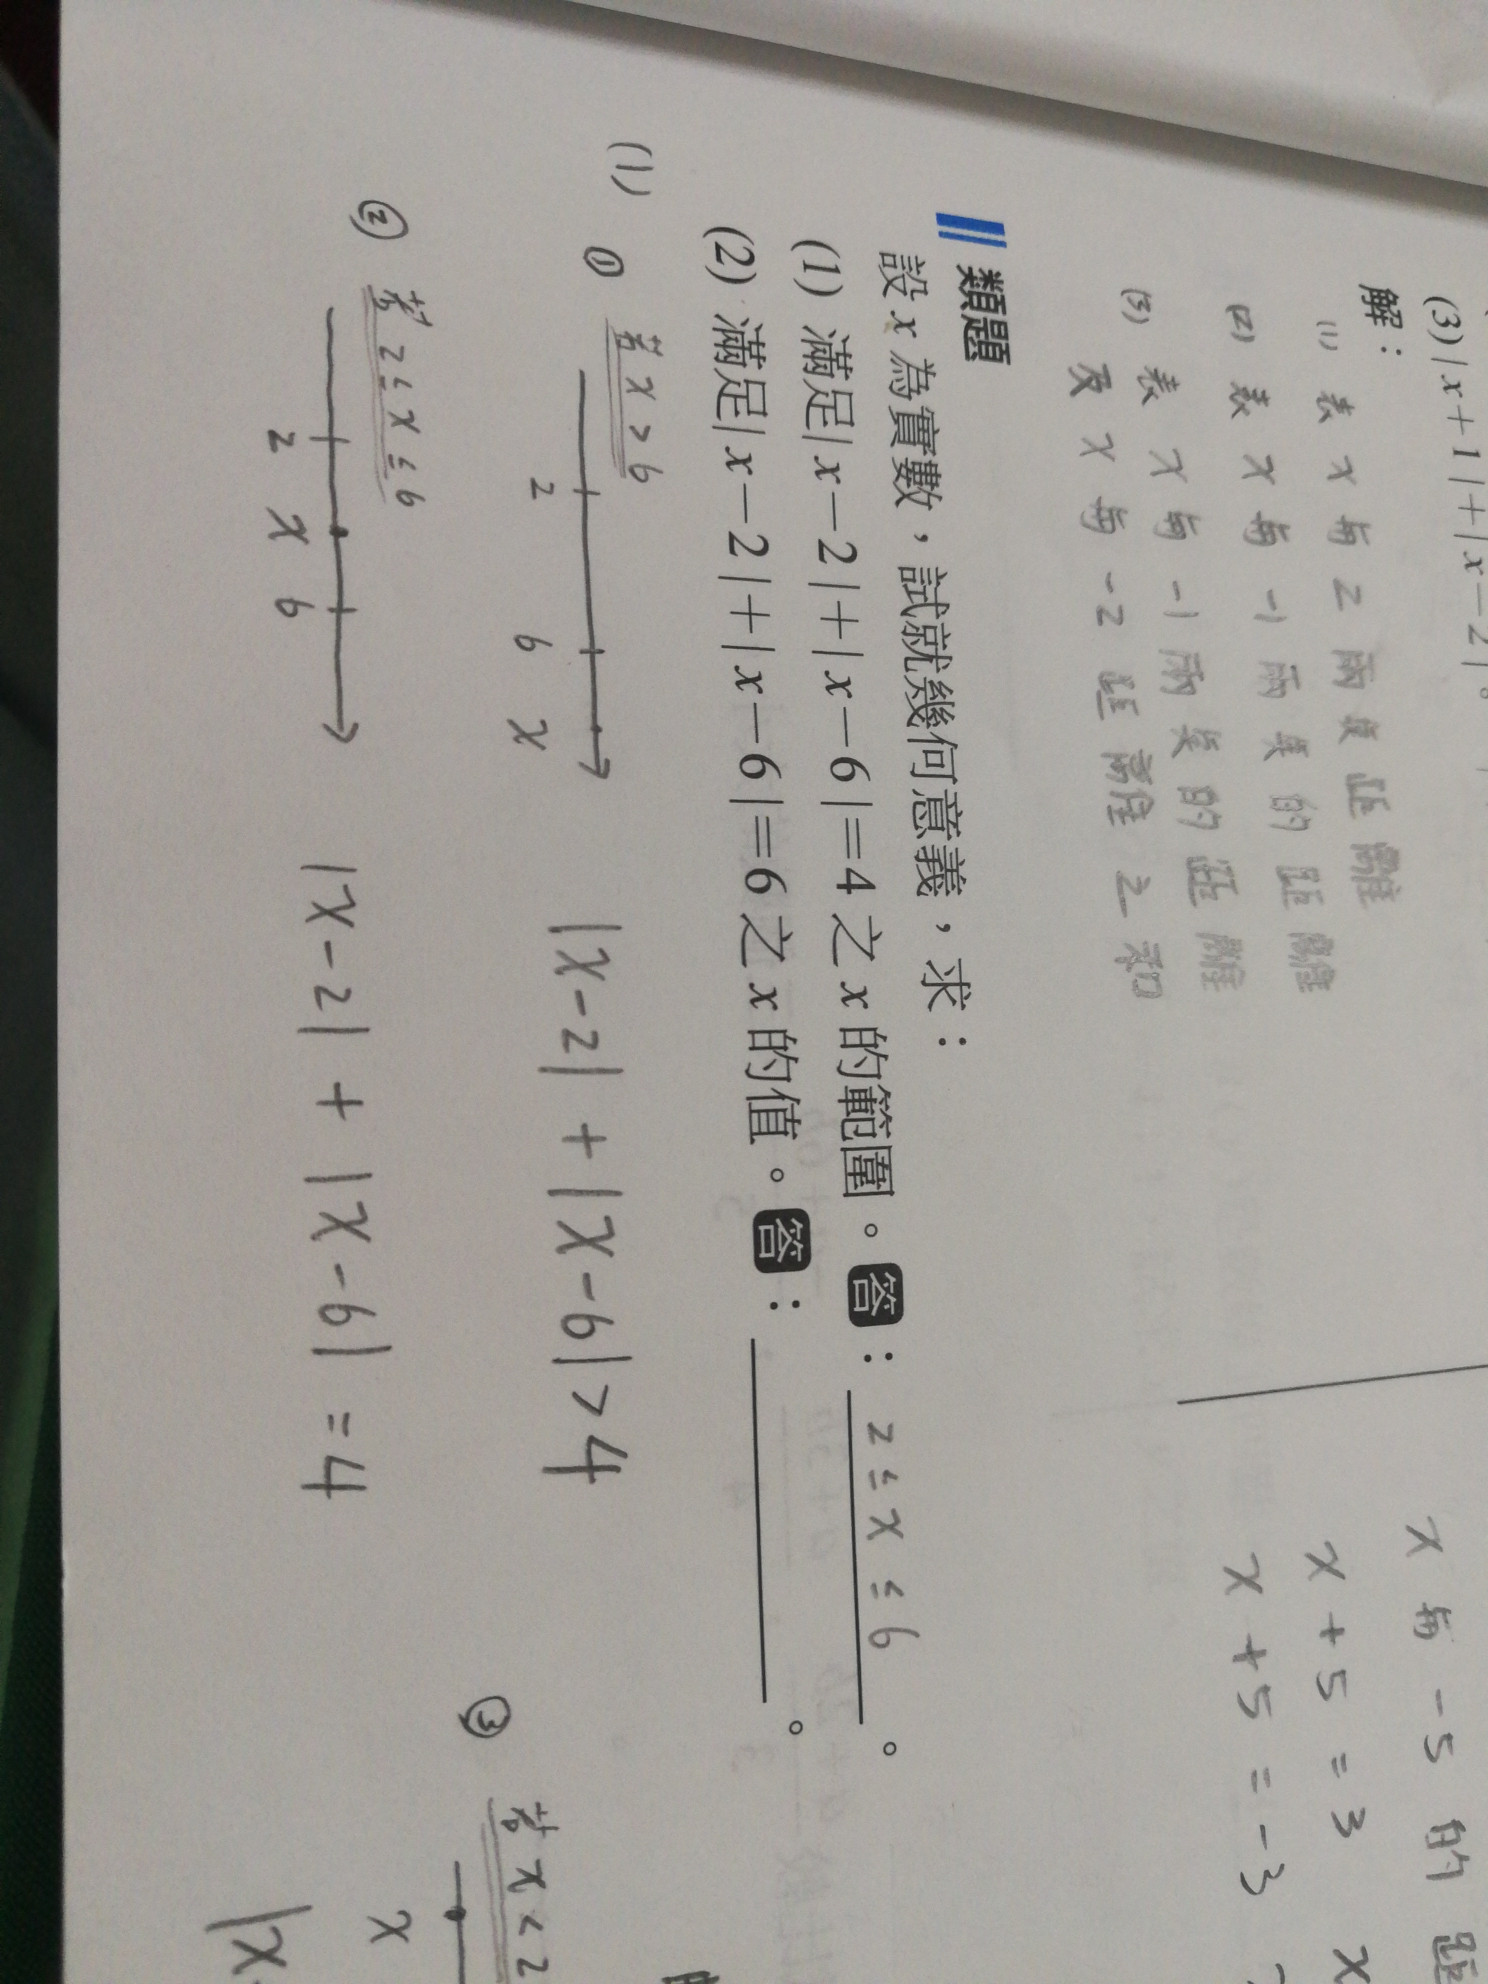 (3) |x+1|+|x-2|。
解：
(1) 表 x 與 2 兩點距離
(2) 表 x 與 -1 兩點的距離
(3) 表 x 與 -1 兩點的距離
及 x 與 -2 距離之和
x 與 -5 的距
x + 5 = 3 x
x + 5 = -3
類題
設 x 為實數，試就幾何意義，求：
(1) 滿足|x-2|+|x-6|=4 之 x 的範圍。答：2 ≤ x ≤ 6。
(2) 滿足|x-2|+|x-6|=6 之 x 的值。答：。
(1) ① 若 x > 6
2 6 x
|x-2| + |x-6| > 4
② 若 2 ≤ x ≤ 6
2 x 6
|x-2| + |x-6| = 4
③ 若 x < 2
x
|x-